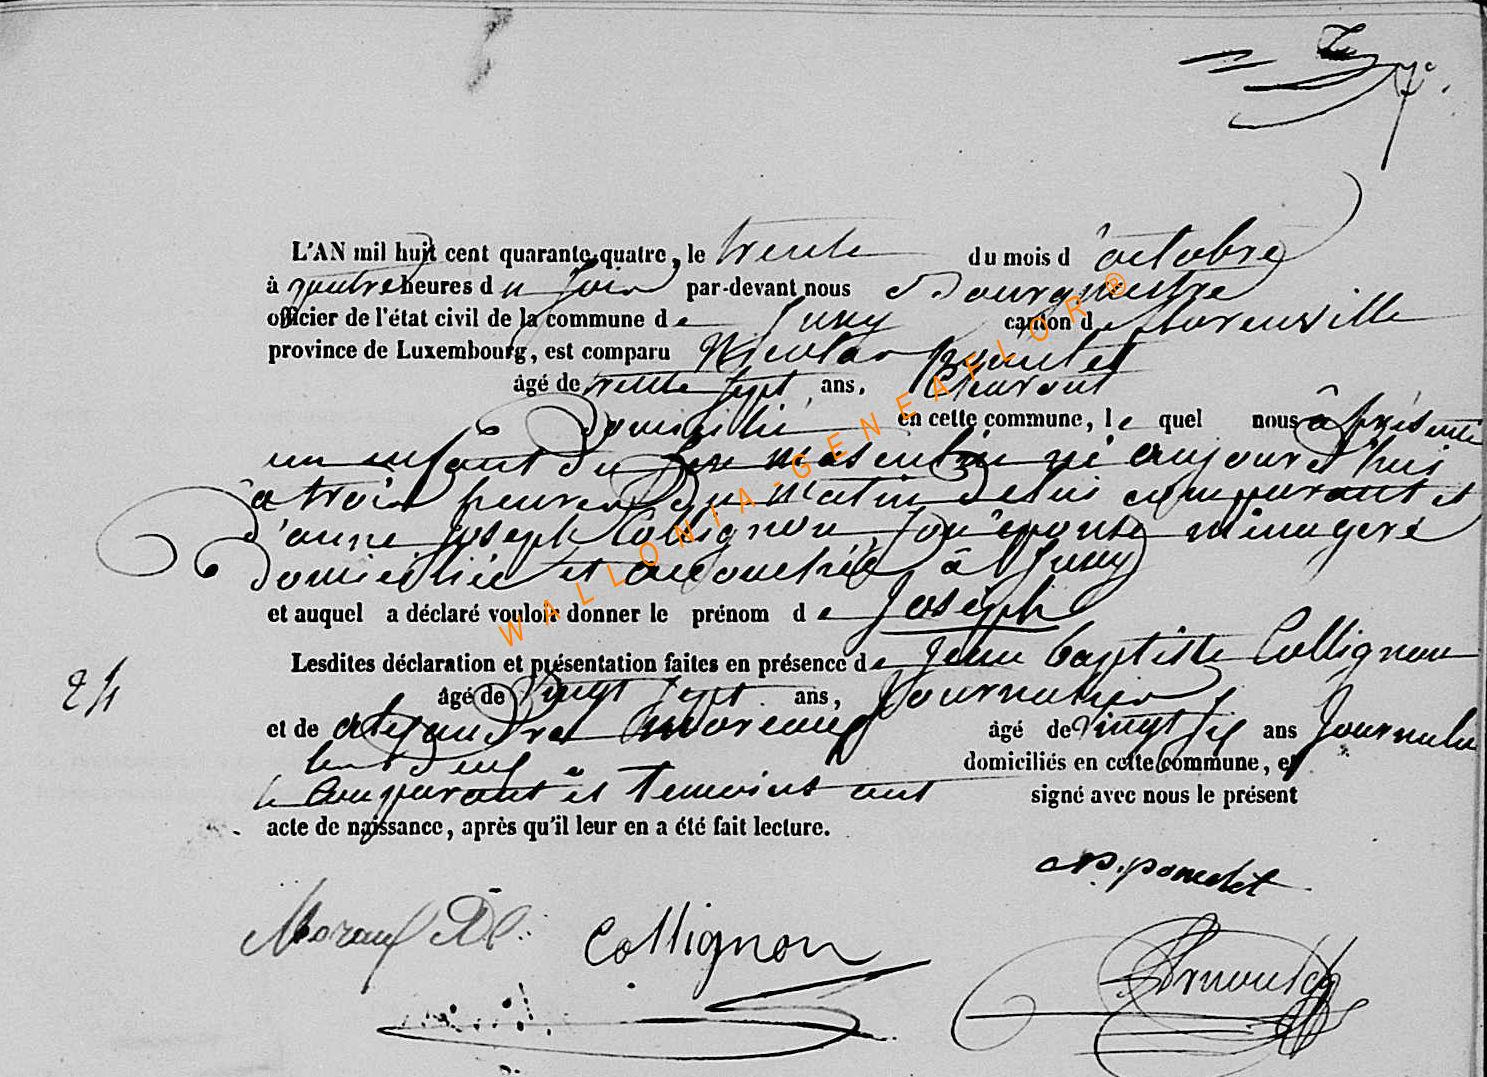 L'AN mil huit cent quarante-quatre, le trente du mois d'octobre
à quatre heures du soir par-devant nous Bourgmestre
officier de l'état civil de la commune de Juny canton de
province de Luxembourg, est comparu Nicolas Poncelet
âgé de trente sept ans,
domicilié en cette commune, lequel nous à présenté
un enfant du sexe masculin né aujourd'hui
à trois heures du matin de lui comparant et
d'anne joseph Collignon son épouse ménagère
domiciliée et accouchée à Juny
et auquel a déclaré vouloir donner le prénom de Joseph
Lesdites déclaration et présentation faites en présence de Jean baptiste Collignon
24
âgé de vingt sept ans, Journalier
et de alexandre moreaux âgé de vingt six ans Journalier
tous deux domiciliés en cette commune, et
le Comparant et temoins ont signé avec nous le présent
acte de naissance, après qu'il leur en a été fait lecture.
N. poncelet
Moraux
Collignon
Arnould
WALLONIA-GENEAFLOR®